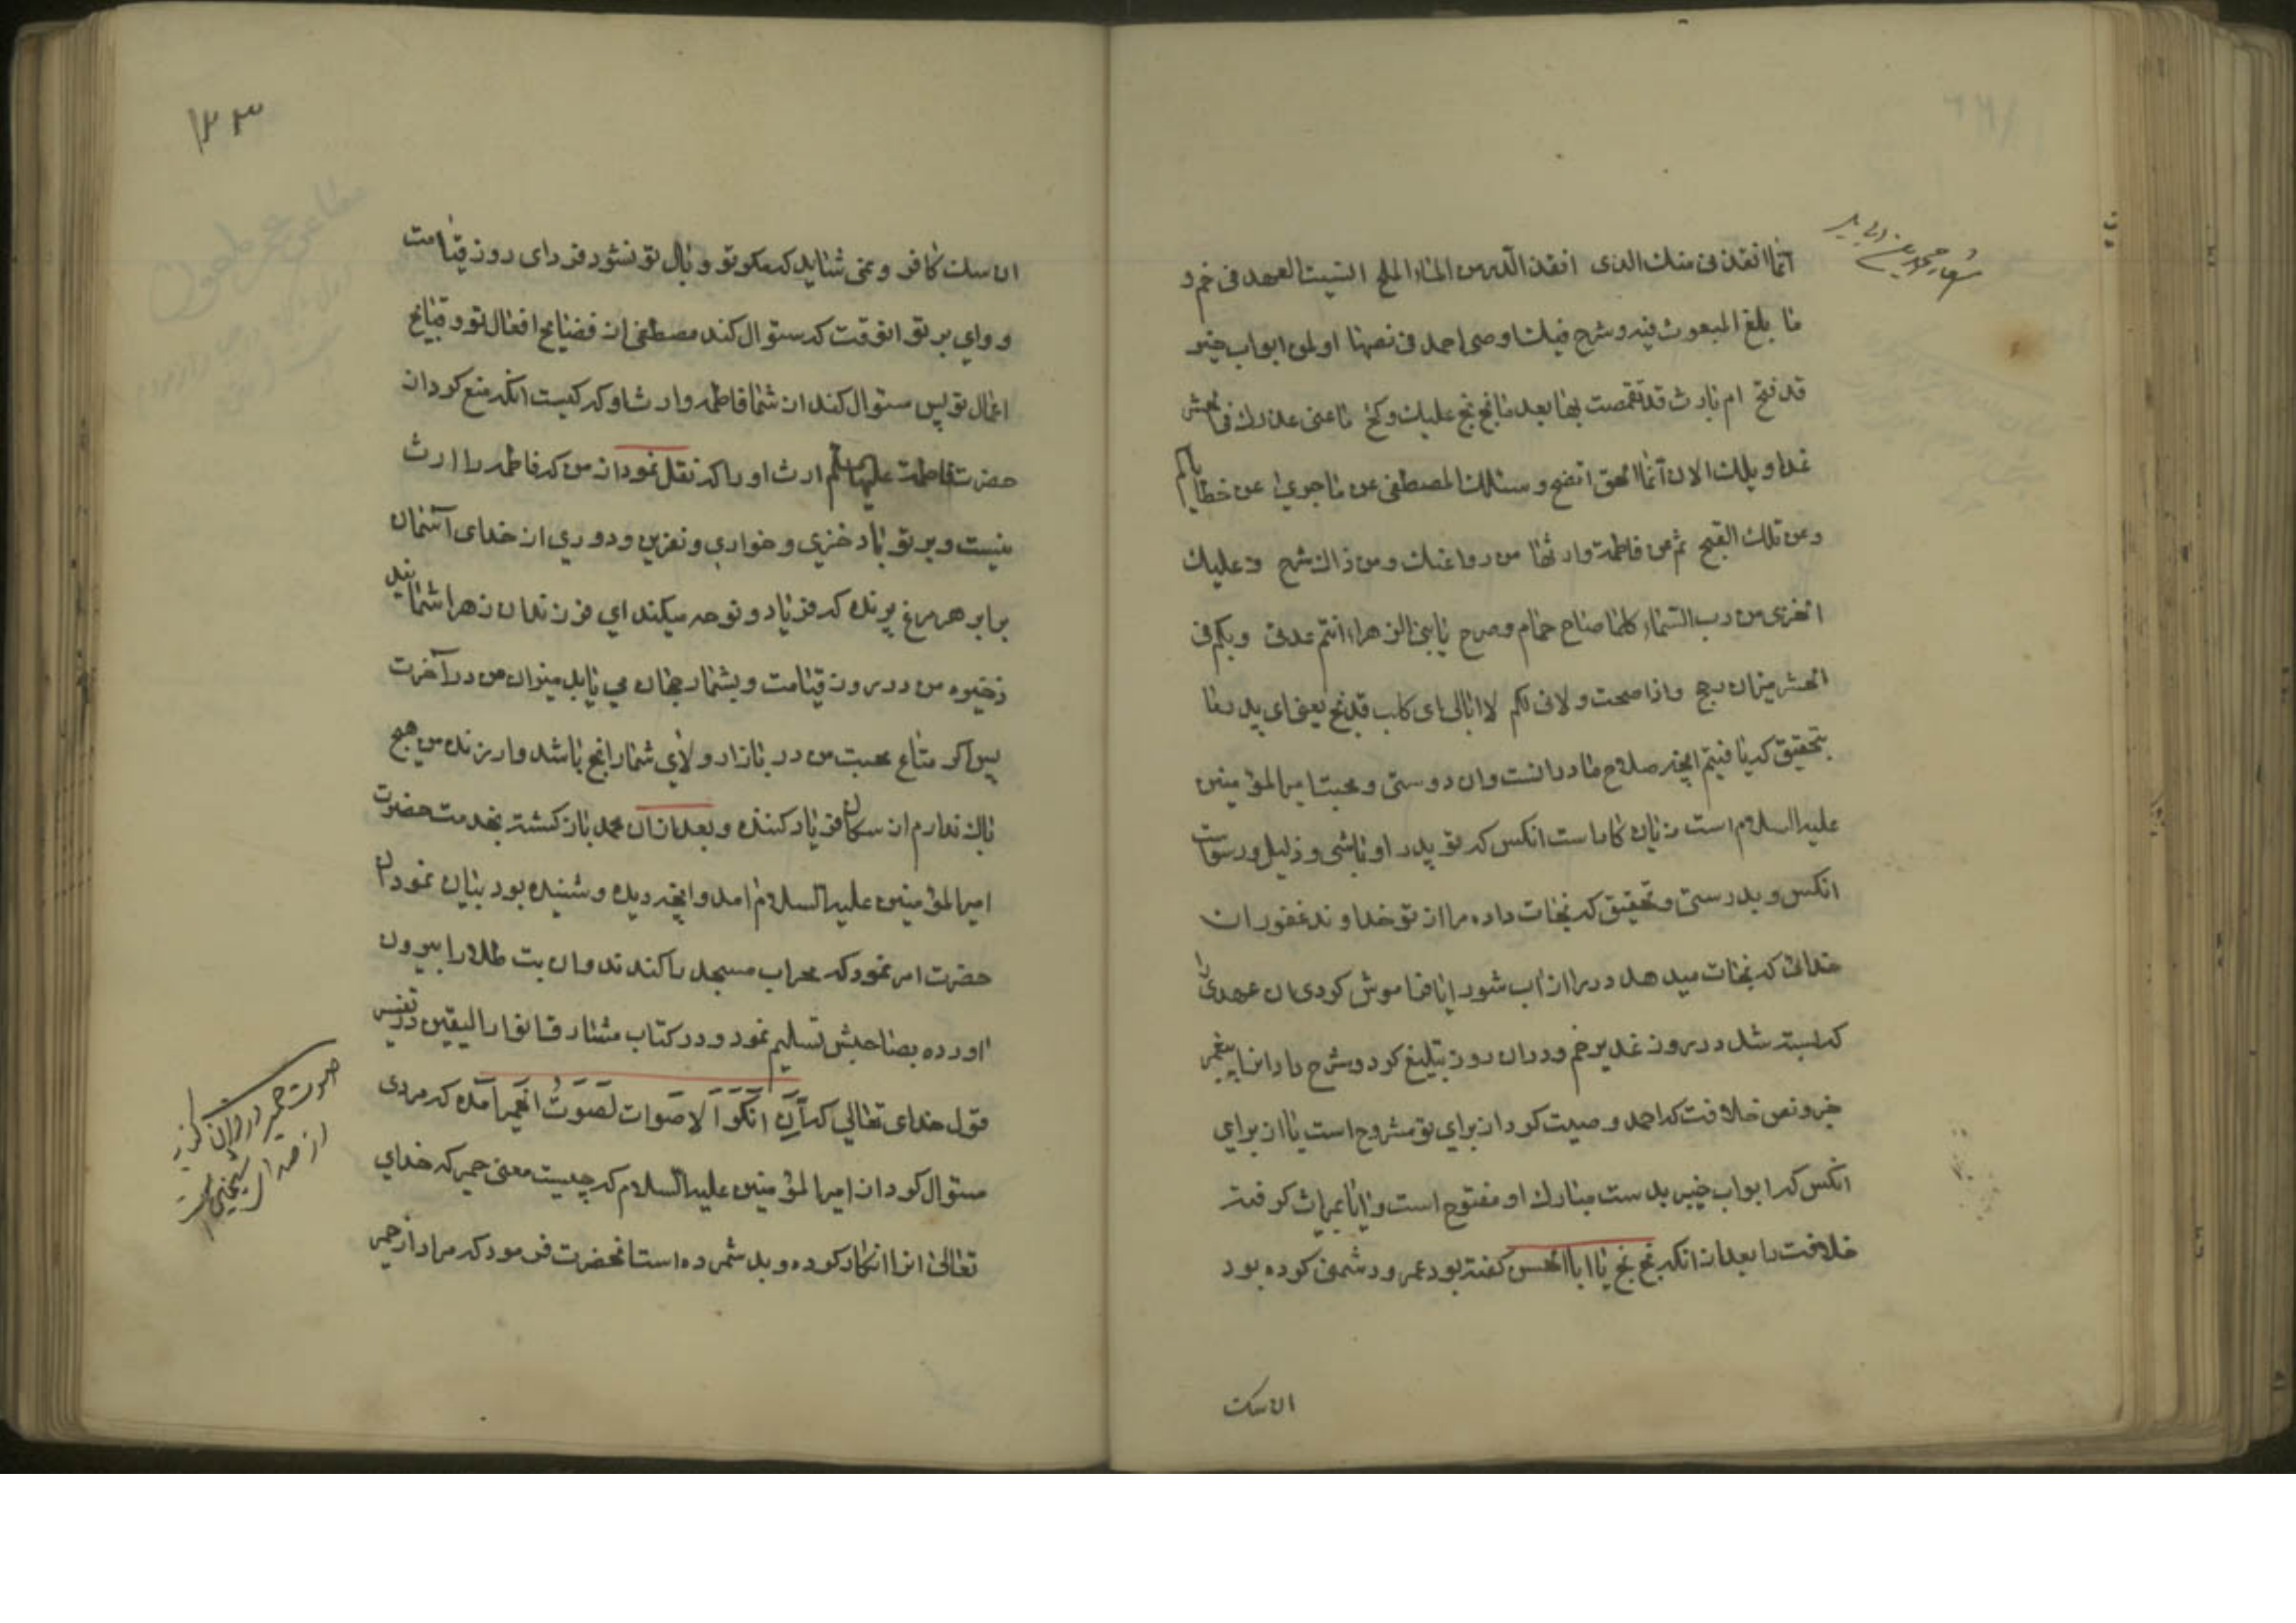 انما انقذنی منك الذی انقذ الدر من الماء الملح انسیت العهد فی خم و
ما بلغ المبعوث فیه وشرح فیك اوصی احمد فی نصها او لمن ابواب خیبر
قد فتح ام بارث قد تقمصت بها بعد ما بخ بخ علیك وكخ ما عنی عذرك فی الحشر
غدا ویلك الان انما الحق اتضح وسئلك المصطفی عن ما جری عن خطایاكم
وعن تلك القبح ثم عن فاطمة وارثها من روا عنك ومن ذاك شرح وعلیك
الخزی من رب السماء كلما صاح حمام وصرح یا بنی الزهراء انتم عدتی وبكم فی
الحشر میزان رجح واذا صحت ولائی لكم لا ابالی ای كلب قد نبح یعنی ای پدر ما
بتحقیق كه یافتیم انچه صلاح ما در انست وان دوستی و محبت امیر المؤمنین
علیه السلام است زیان كار است انكس كه تو پدر او باشی و ذلیل و رسواست
انكس و بدرستی و تحقیق كه نجات داده مرا از تو خداوند غفور ان
خدائی كه نجات میدهد در را از اب شور ایا فراموش كردی ان عهدی را
كه بسته شد در روز غدیر خم و دران روز تبلیغ كرد و شرح داد انرا پیغمبر
خبر و نص خلافت كه احمد وصیت كرد از برای تو مشروح است یا از برای
انكس كه ابواب خیبر بدست مبارك او مفتوح است و ایا بمیراث گرفته
خلافت را بعد از انكه بخ بخ یا ابا الحسن گفته بود عمر و دشمنی كرده بود
ان سك كافر و نمی شاید كه مكر تو وبال تو نشود فردای روز قیامت
و وای بر تو انوقت كه سئوال كند مصطفی از فضایح افعال تو و قبایح
اعمال تو پس سئوال كند از شما فاطمه وارث او كه كیست انكه منع كرد از
حضرت فاطمة علیها سلم ارث او را كه نقل نمود از من كه فاطمه را ارث
نیست و بر تو باد خزی و خواری و نفرین و دوری از خدای آسمان
برابر هر مرغ پرنده كه فریاد و نوحه میكند ای فرزندان زهرا شمایید
ذخیره من در روز قیامت و بشما رجحان می یابد میزان من در آخرت
پس اگر متاع محبت من در بازار ولای شما رایج باشد و ارزنده من هیچ
باك ندارم از سكان فریاد كننده و بعد از ان محمد باز گشته بخدمت حضرت
امیر المؤمنین علیه السلام امد و انچه دیده و شنیده بود بیان نمود ان
حضرت امر نمود كه محراب مسجد را كندند و ان بت طلا را بیرون
اورده بصاحبش تسلیم نمود و در كتاب مشارق انوار الیقین در تفسیر
قول خدای تعالی كه اِنَّ اَنْكَرَ الاَصوات لَصَوتُ الحَمیر آمده كه مردی
سئوال كرد از امیر المؤمنین علیه السلام كه چیست معنی حمیر كه خدای
تعالی انرا انكار كرده و بد شمرده است انحضرت فرمود كه مراد از حمیر
ان سك
صوت حمیر در قران
۱۲۳